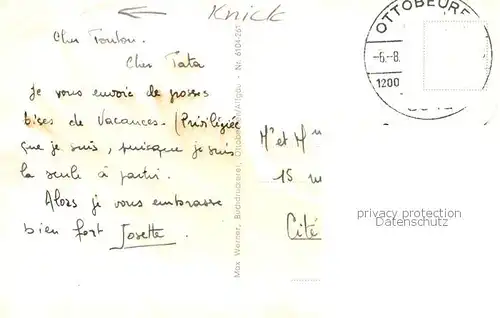 Knick
OTTOBEURE
-6.-8.
1200
Cher Tonton.
Cher Tata
Je vous envoie de grosses
bises de Vacances. (Privilégiée
que je suis, puisque je suis
la seule à partir.
Alors je vous embrasse
bien fort Josette.
Max Werner, Buchdruckerei, Ottobeuren/Allgäu - Nr. 6104-26
Mr et M
15
Cité
privacy protection
Datenschutz